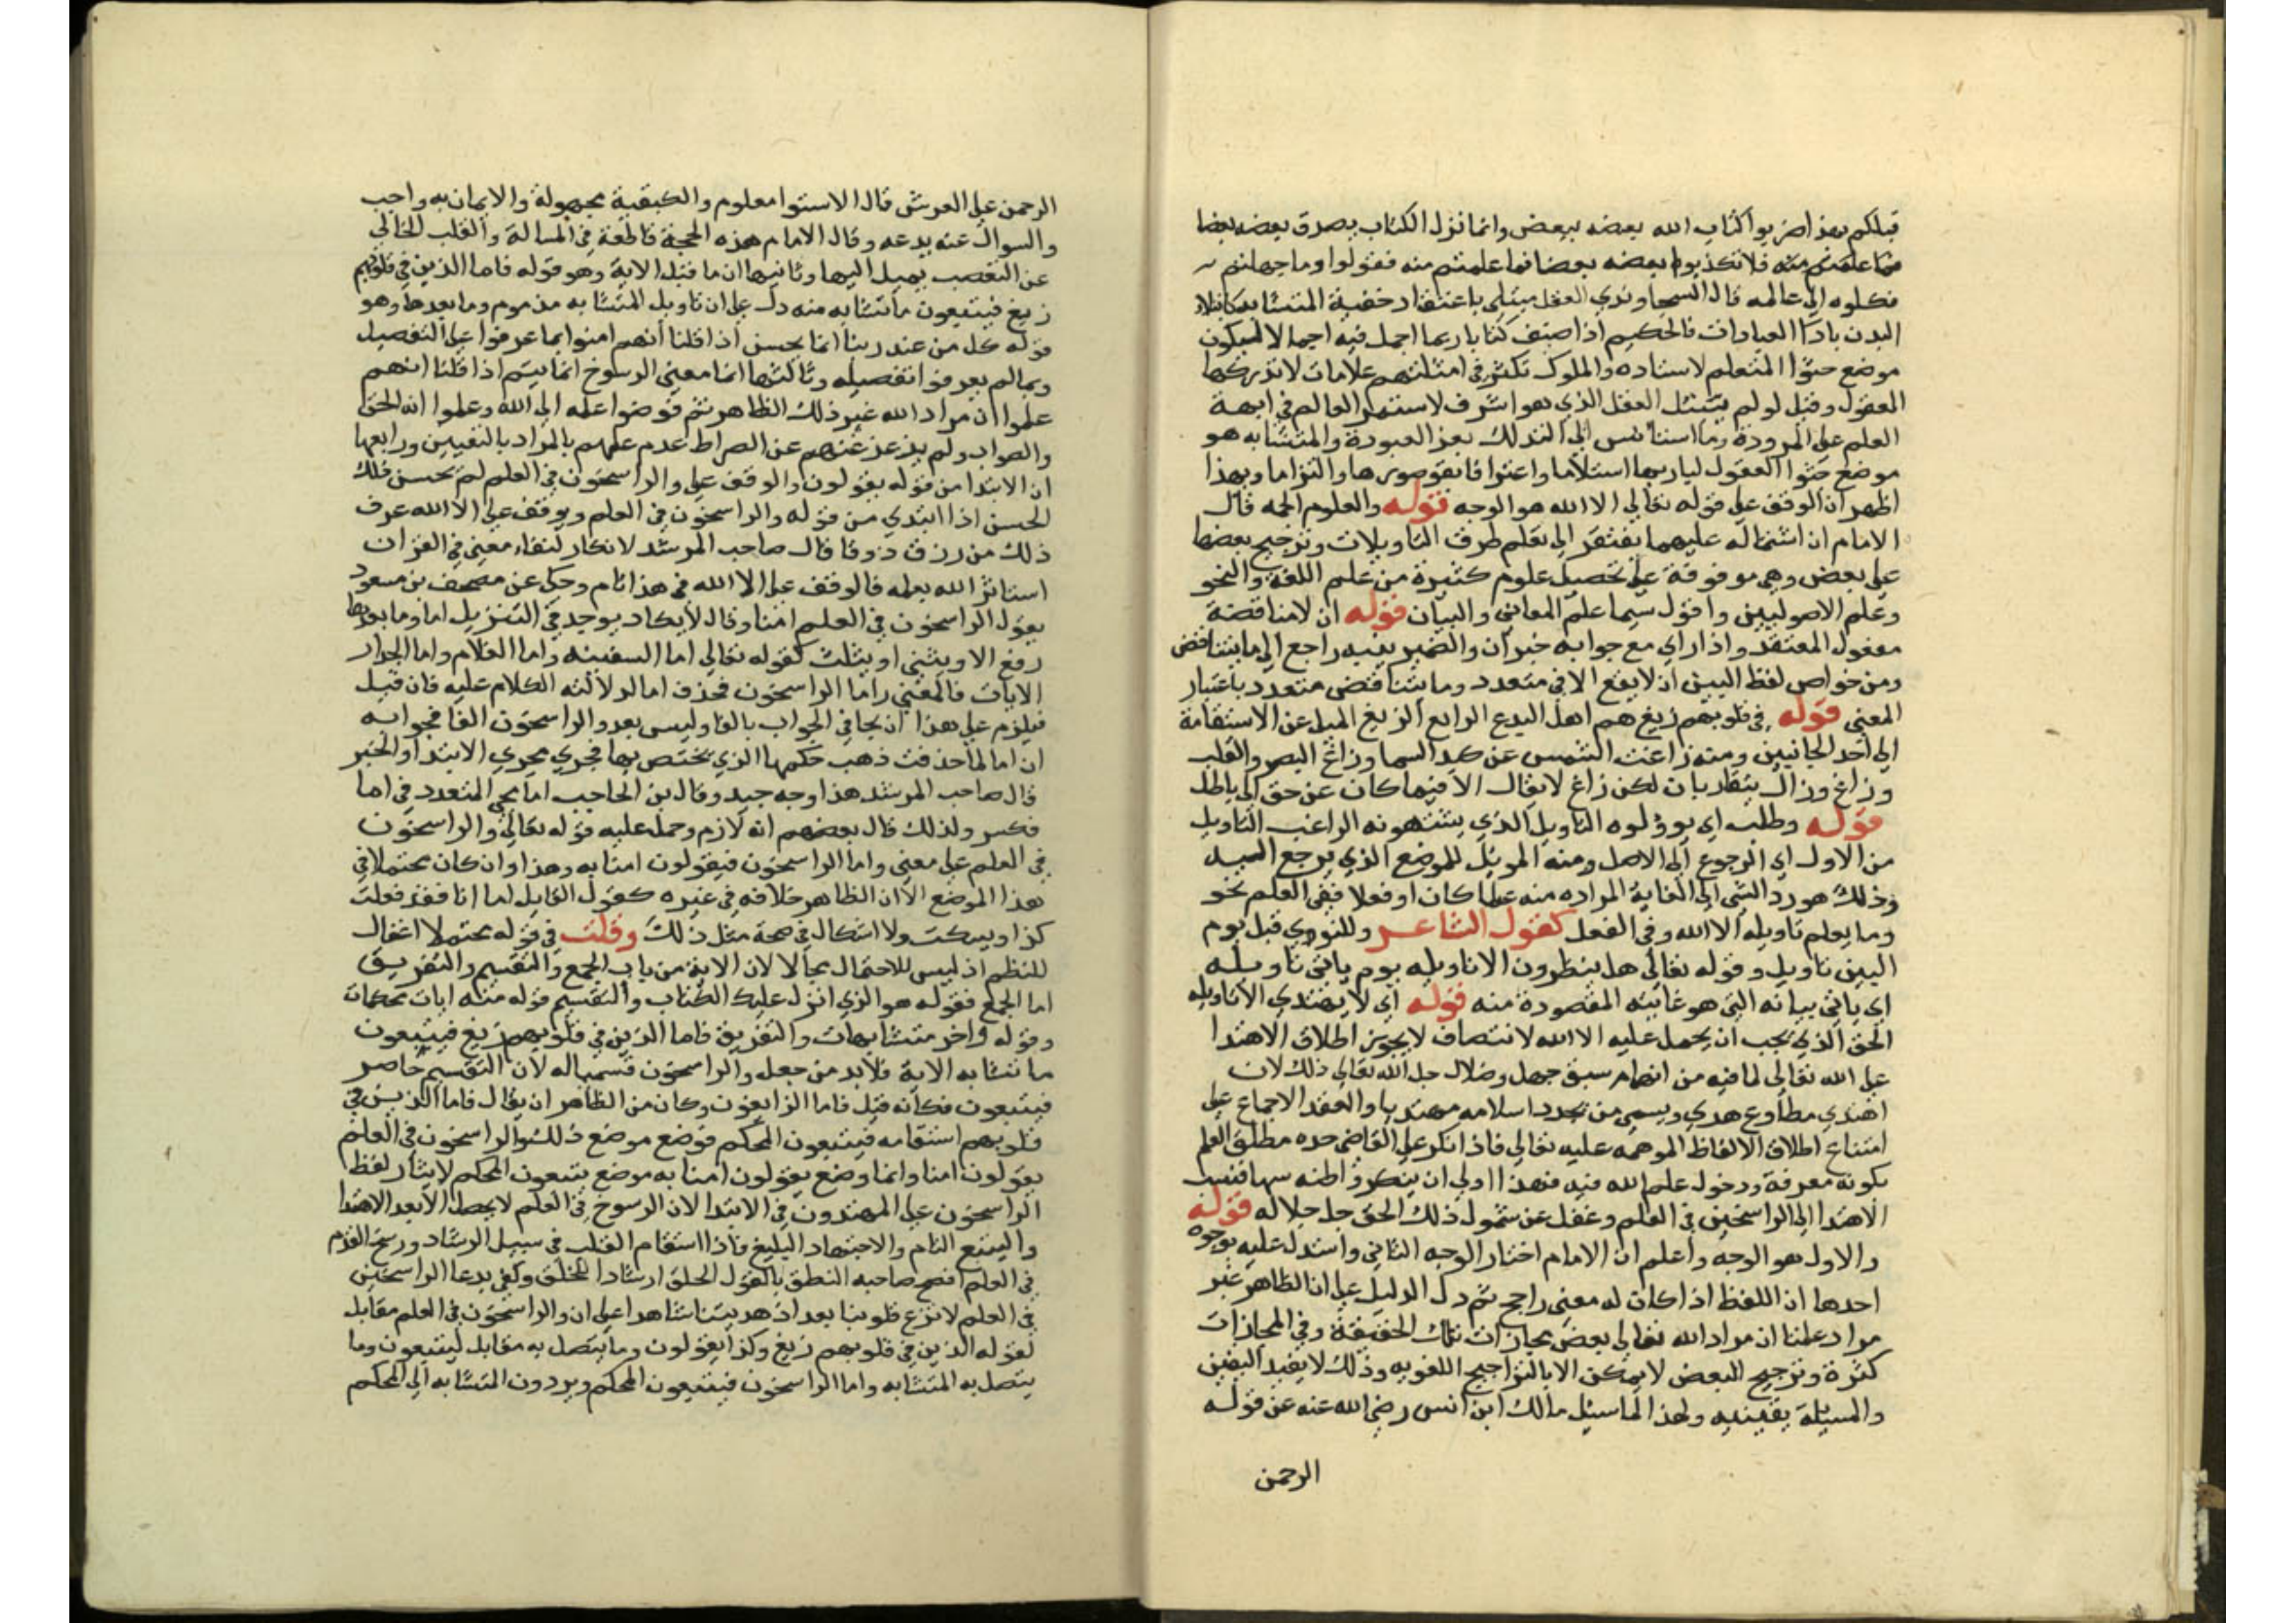 قبلكم بهذا ضربوا كتاب الله بعضه ببعض وانما نزل الكتاب يصدق بعضه بعضا
فما علمتم منه فلا تكذبوا بعضه بعضا فما علمتم منه فقولوا وما جهلتم
فكلوه الي عالمه قال السجاوندي العقل مبتلي باعتقاد حقية المتشابه كابتلاء
البدن بادا العبادات فالحكيم اذا صنف كتابا ربما اجمل فيه اجمالا ليكون
موضع جثوا المتعلم لاستاده والملوك تكثر في امثلتهم علامات لا تدركها
العقول وقيل لو لم يبتل العقل الذي هو اشرف لاستمر العالم في ابهة
العلم علي المرودة وما استانس الي التذلل بعز العبودة والمتشابه هو
موضع جثوا العقول لباريها استلاما واعترافا بقصورها والتزاما وبهذا
اظهر ان الوقف علي قوله تعالي الا الله هو الوجه قوله والعلوم الجمه قال
الامام ان اشتماله عليهما يفتقر الي تعلم طرق التاويلات وترجيح بعضها
علي بعض وهي موقوفة علي تحصيل علوم كثيرة من علم اللغة والنحو
وعلم الاصوليين واقول سيما علم المعاني والبيان قوله ان لا مناقضة
مفعول المعتقد واذا راي مع جوابه خبر ان والضمير بغيه راجع الي ما يتناقض
ومن خواص لفظ البين ان لا يقع الا في متعدد وما يتناقض متعدد باعتبار
المعني قوله في قلوبهم زيغ هم اهل البدع الراغب الزيغ الميل عن الاستقامة
الي احد الجانبين ومنه زاغت الشمس عن كبد السما وزاغ البصر والقلب
وزاغ وزال يتقاربان لكن زاغ لا يقال الا فيما كان عن حق الي باطل
قوله وطلب اي يوؤلوه التاويل الذي يشتهونه الراغب التاويل
من الاول اي الرجوع الي الاصل ومنه الموئل للموضع الذي يرجع اليه
وذلك هو رد الشي الي الغاية المراده منه علما كان او فعلا ففي العلم نحو
وما يعلم تاويله الا الله وفي الفعل كقول الشاعر وللنوي قبل يوم
البين تاويل وقوله تعالي هل ينظرون الا تاويله يوم ياتي تاويله
اي ياتي بيانه التي هو غايته المقصودة منه قوله اي لا يهتدي الا تاويله
الحق الذي يجب ان يحمل عليه الا الله لا نتصاف لا يجوز اطلاق الاهتدا
علي الله تعالي لما فيه من ايهام سبق جهل وضلال جل الله تعالي ذلك لان
اهتدي مطاوع هدي ويسمي من تجدد اسلامه مهتديا والعقد الاجماع علي
امتناع اطلاق الالفاظ الموهمه عليه تعالي فاذا انكر علي القاضي حده مطلق العلم
بكونه معرفة ودخول علم الله فيه فهذا اولي ان ينكر واظنه سها فنسب
الاهتدا الي الراسخين في العلم وغفل عن شمول ذلك الحق جل جلاله قوله
والاول هو الوجه واعلم ان الامام اختار الوجه الثاني واستدل عليه بوجوه
احدها ان اللفظ اذا كان له معني راجح ثم دل الدليل علي ان الظاهر غير
مراد علمنا ان مراد الله تعالي بعض مجازات تلك الحقيقة وفي المجازات
كثرة وترجيح البعض لا يمكن الا بالتراجيح اللغويه وذلك لا يفيد اليقين
والمسيلة يقينيه ولهذا لما سيل مالك ابن انس رضي الله عنه عن قوله
الرحمن
الرحمن علي العرش قال الاستوا معلوم والكيفية مجهولة والايمان به واجب
والسوال عنه بدعه وقال الامام هذه الحجة قاطعة في المسالة والقلب الخالي
عن التعصب يميل اليها وثانيها ان ما قبل الاية وهو قوله فاما الذين في قلوبهم
زيغ فيتبعون ما تشابه منه دل علي ان تاويل المتشابه مذموم وما بعدها وهو
قوله كل من عند ربنا انما يحسن اذا قلنا انهم امنوا بما عرفوا علي التفصيل
وبما لم يعرفوا تفصيله وثالثها انما معني الرسوخ انما يتم اذا قلنا انهم
علموا ان مراد الله غير ذلك الظاهر ثم فوضوا علمه الي الله وعلموا انه الحق
والصواب ولم يذعذعهم عن الصراط عدم علمهم بالمراد بالتعيين ورابعها
ان الابتدا من قوله يقولون والوقف علي والراسخون في العلم لم يحسن فلك
الحسن اذا ابتدي من قوله والراسخون في العلم ويوقف علي الا الله عرف
ذلك من رزق ذوقا قال صاحب المرشد لا انكار لبقاء معني في القران
استاثر الله بعلمه فالوقف علي الا الله في هذا تام وحكي عن مصحف بن مسعود
يقول الراسخون في العلم امنا وقال لا يكاد يوجد في التنزيل اما وما بعدها
رفع الا ويثني او يثلث كقوله تعالي اما السفينه واما الغلام واما الجدار
الايات فالمعني واما الراسخون فحذف اما لدلالة الكلام عليه فان قيل
فيلزم علي هذا ان يجا في الجواب بالفا وليس بعد والراسخون الفا فجوابه
ان اما لما حذفت ذهب حكمها الذي يختص بها فجري مجري الابتدا والخبر
قال صاحب المرشد هذا وجه جيد وقال بن الحاجب اما يجي المتعدد في اما
فكسر ولذلك قال بعضهم انه لازم وحمل عليه قوله تعالي والراسخون
في العلم علي معني واما الراسخون فيقولون امنا به وهذا وان كان محتملا في
هذا الموضع الا ان الظاهر خلافه في غيره كقول القايل اما انا فقد فعلت
كذا ويسكت ولا اشكال في صحة مثل ذلك وقلت في قوله محتملا اغفال
للنظم اذ ليس للاحتمال مجالا لان الاية من باب الجمع والتقسيم والتفريق
اما الجمع فقوله هو الذي انزل عليك الكتاب والتقسيم قوله منه ايات محكمات
وقوله واخر متشابهات والتفريق فاما الذين في قلوبهم زيغ فيتبعون
ما تشابه الاية فلا بد من جعل والراسخون قسيما له لان التقسيم حاصر
فيتبعون فكانه قيل فاما الزايغون وكان من الظاهر ان يقال فاما الذين في
قلوبهم استقامه فيتبعون المحكم فوضع موضع ذلك والراسخون في العلم
يقولون امنا وانما وضع يقولون امنا به موضع يتبعون المحكم لايثار لفظ
الراسخون علي المهتدون في الابتدا لان الرسوخ في العلم لا يحصل الا بعد الاهتدا
والتتبع التام والاجتهاد البليغ فاذا استقام القلب في سبيل الرشاد ورسخ القدم
في العلم افصح صاحبه النطق بالقول الحلق ارشادا للخلق وكفي بدعا الراسخين
في العلم لا تزغ قلوبنا بعد اذ هديتنا شاهدا علي ان والراسخون في العلم مقابل
لقوله الذين في قلوبهم زيغ وكذا يقولون وما يتصل به مقابل ليتبعون وما
يتصل به المتشابه واما الراسخون فيتبعون المحكم ويردون المتشابه الي المحكم